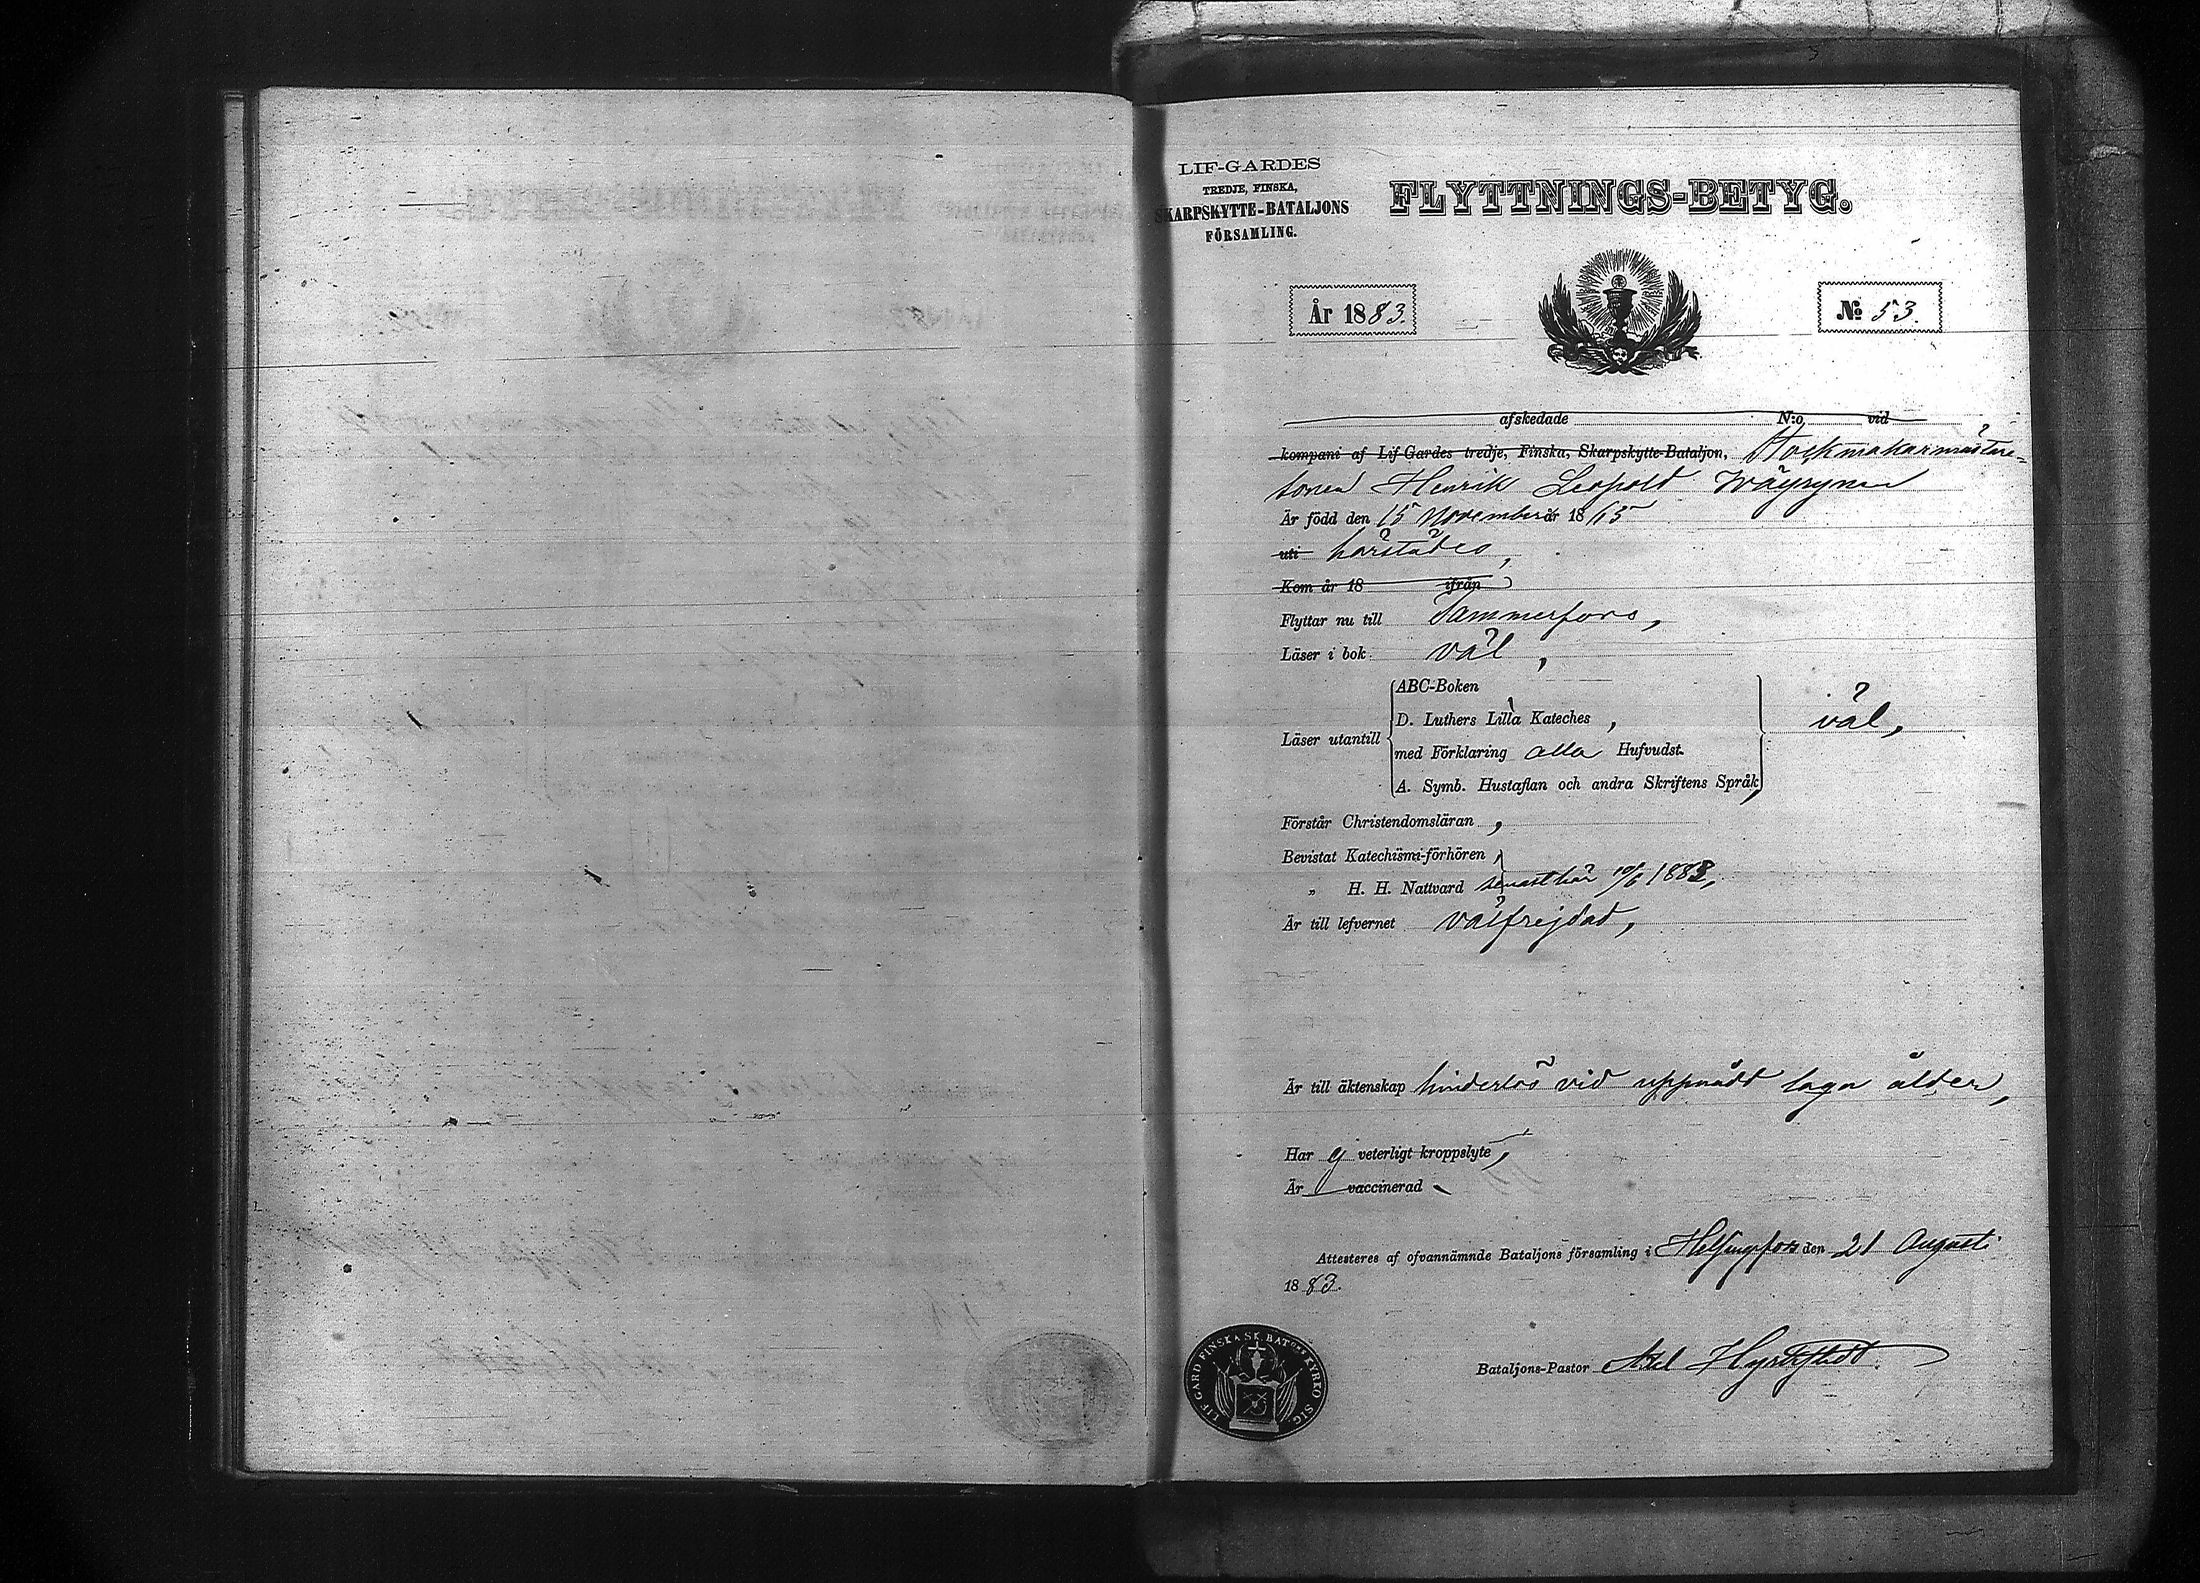 LIF-GARDES
TREDJE, FINSKA,
SKARPSKYTTE-BATALJONS
FÖRSAMLING.
FLYTTNINGS-BETYG.
År 1883.
No 53.
afskedade N:o vid
kompani af Lif-Gardes tredje, Finska, Skarpskytte-Bataljon, Stockmakarmästare-
sonen Henrik Leopold Wäyrynen
Är född den 15 November år 1865
uti härstädes,
Kom år 18 ifrån
Flyttar nu till Tammerfors,
Läser i bok väl,
Läser utantill
ABC-Boken
D. Luthers Lilla Kateches,
med Förklaring alla Hufvudst.
A. Symb. Hustaflan och andra Skriftens Språk,
väl,
Förstår Christendomsläran,
Bevistat Katechismi-förhören,
„ H. H. Nattvard senast här 10/6 1883,
Är till lefvernet välfrejdad,
Är till äktenskap hinderlös vid uppnådd laga ålder,
Har ej veterligt kroppslyte,
Är vaccinerad
Attesteres af ofvannämnde Bataljons församling i Helsingfors den 21 Augusti
1883.
Bataljons-Pastor Axel
LIF GARD FINSKA SK. BATONS KYRKO SIG.